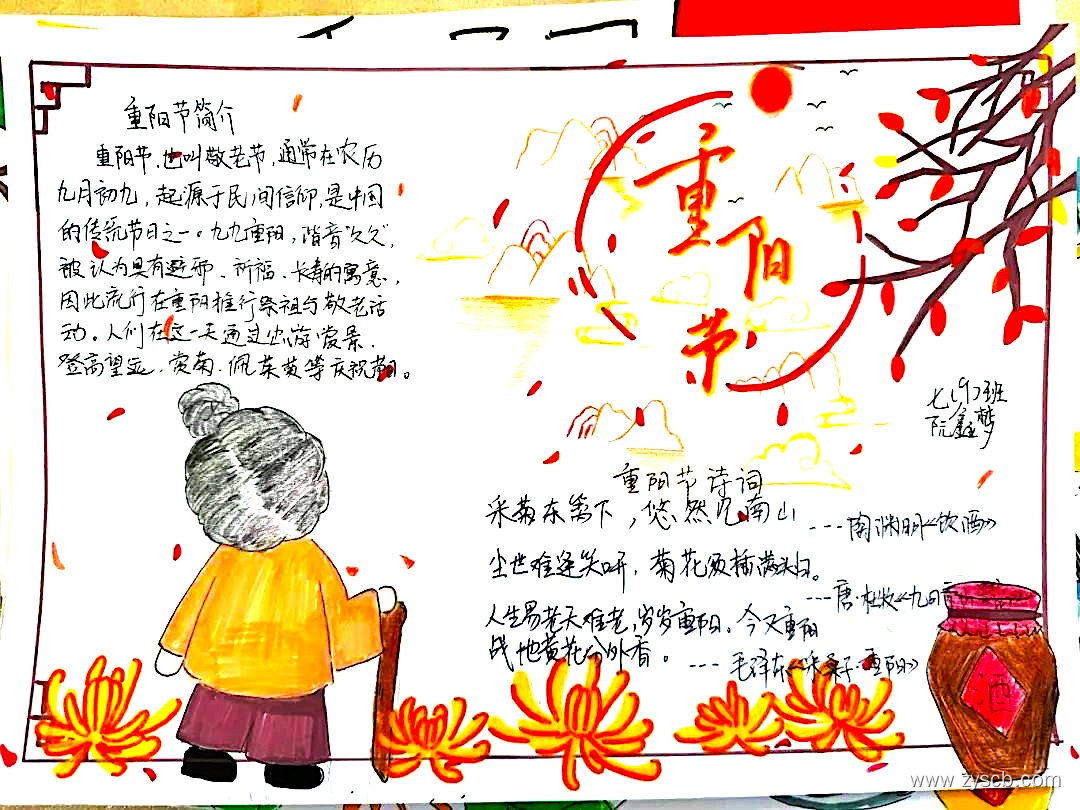 重阳节简介
重阳节，也叫敬老节，通常在农历
九月初九，起源于民间信仰，是中国
的传统节日之一。九九重阳，谐音"久久"，
被认为具有避邪、祈福、长寿的寓意，
因此流行在重阳推行祭祖与敬老活
动。人们在这一天通过出游赏景、
登高望远、赏菊、佩茱萸等庆祝节日。
重
阳
节
七(9)班
阮鑫梦
重阳节诗词
采菊东篱下，悠然见南山
---陶渊明《饮酒》
尘世难逢笑开，菊花须插满头归。
---唐·杜牧《九日
人生易老天难老，岁岁重阳。今又重阳
战地黄花分外香。
---毛泽东《采桑子·重阳》
酒
www.zyscb.com